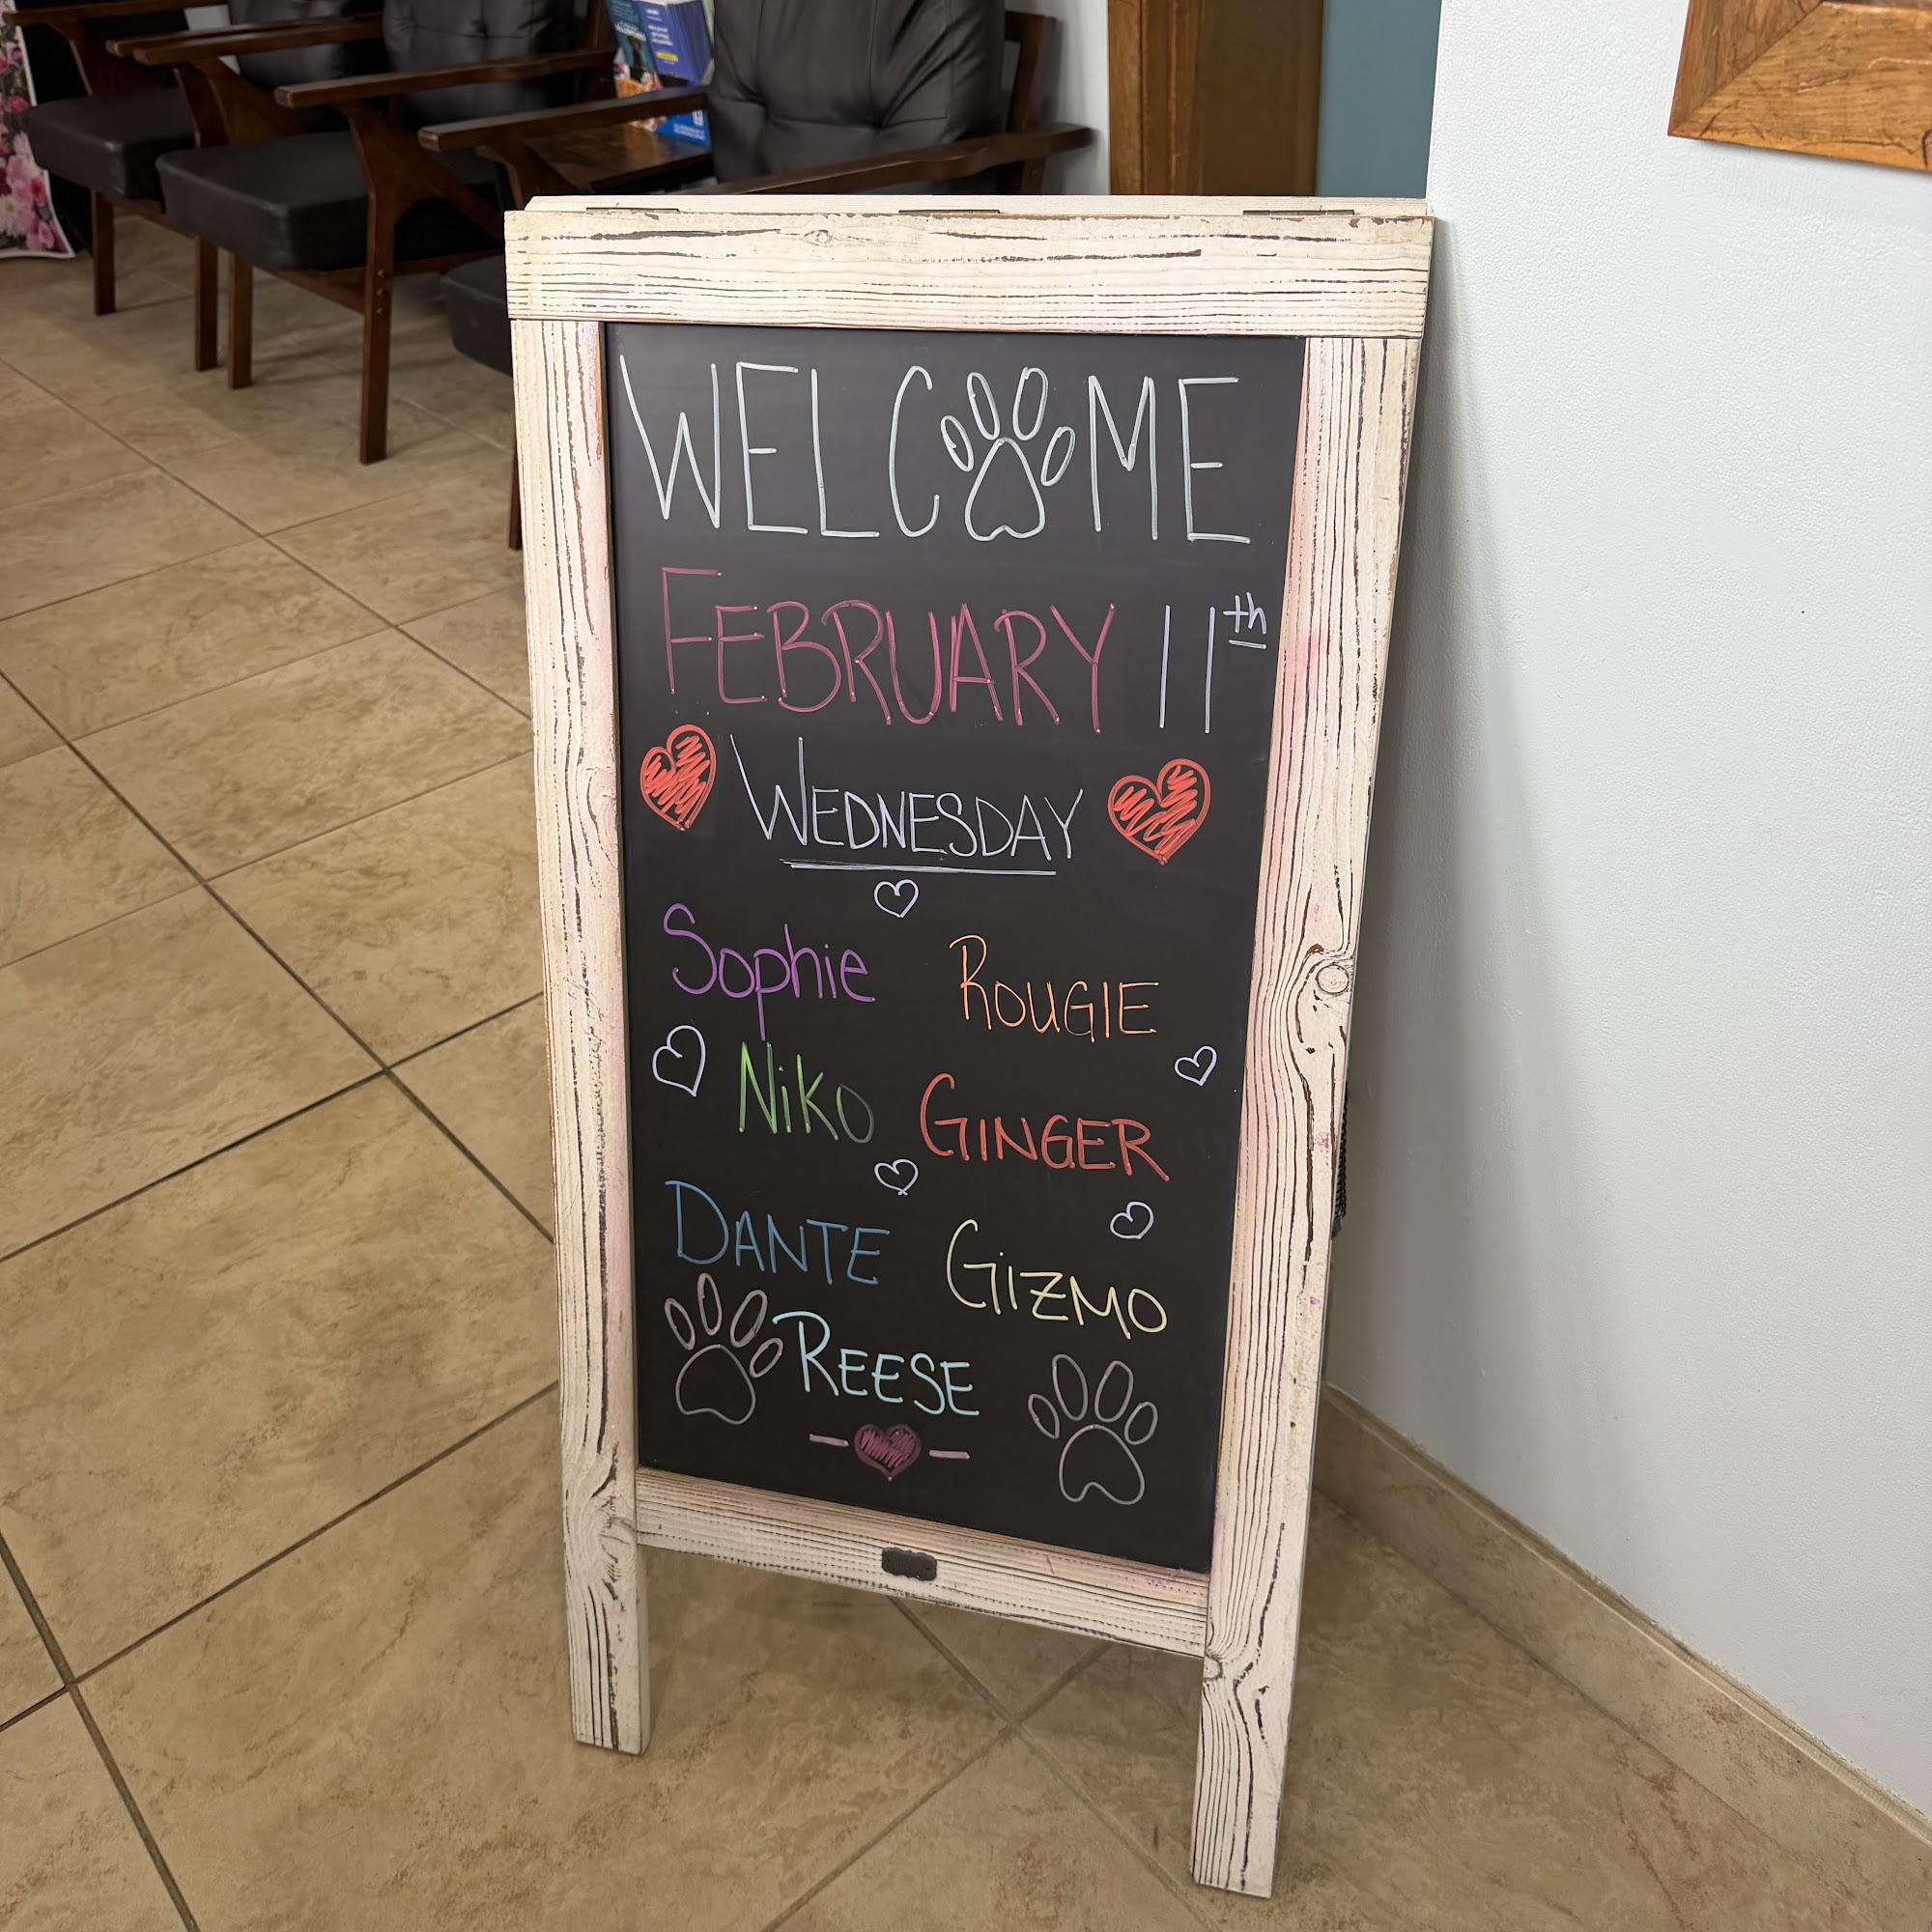 WELCOME
FEBRUARY 11th
WEDNESDAY
Sophie ROUGIE
NiKO GINGER
DANTE GiZMO
REESE